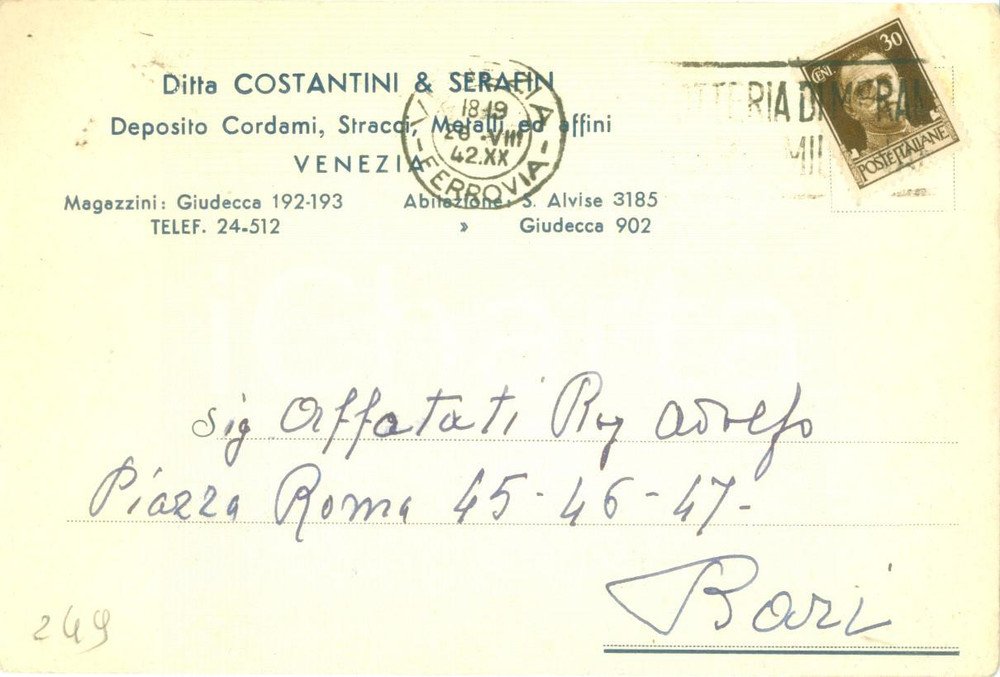 Ditta COSTANTINI & SERAFIN
Deposito Cordami, Stracci, Metalli ed affini
VENEZIA
Magazzini: Giudecca 192-193
TELEF. 24-512
Abitazione: S. Alvise 3185
» Giudecca 902
VENEZIA
18-19
VIII
42.XX
-FERROVIA-
TTERIA DI MERAN
MILI
CENT. 30
POSTE ITALIANE
iCharta
Sig Affatati Rag Adolfo
Piazza Roma 45-46-47-
Bari
249